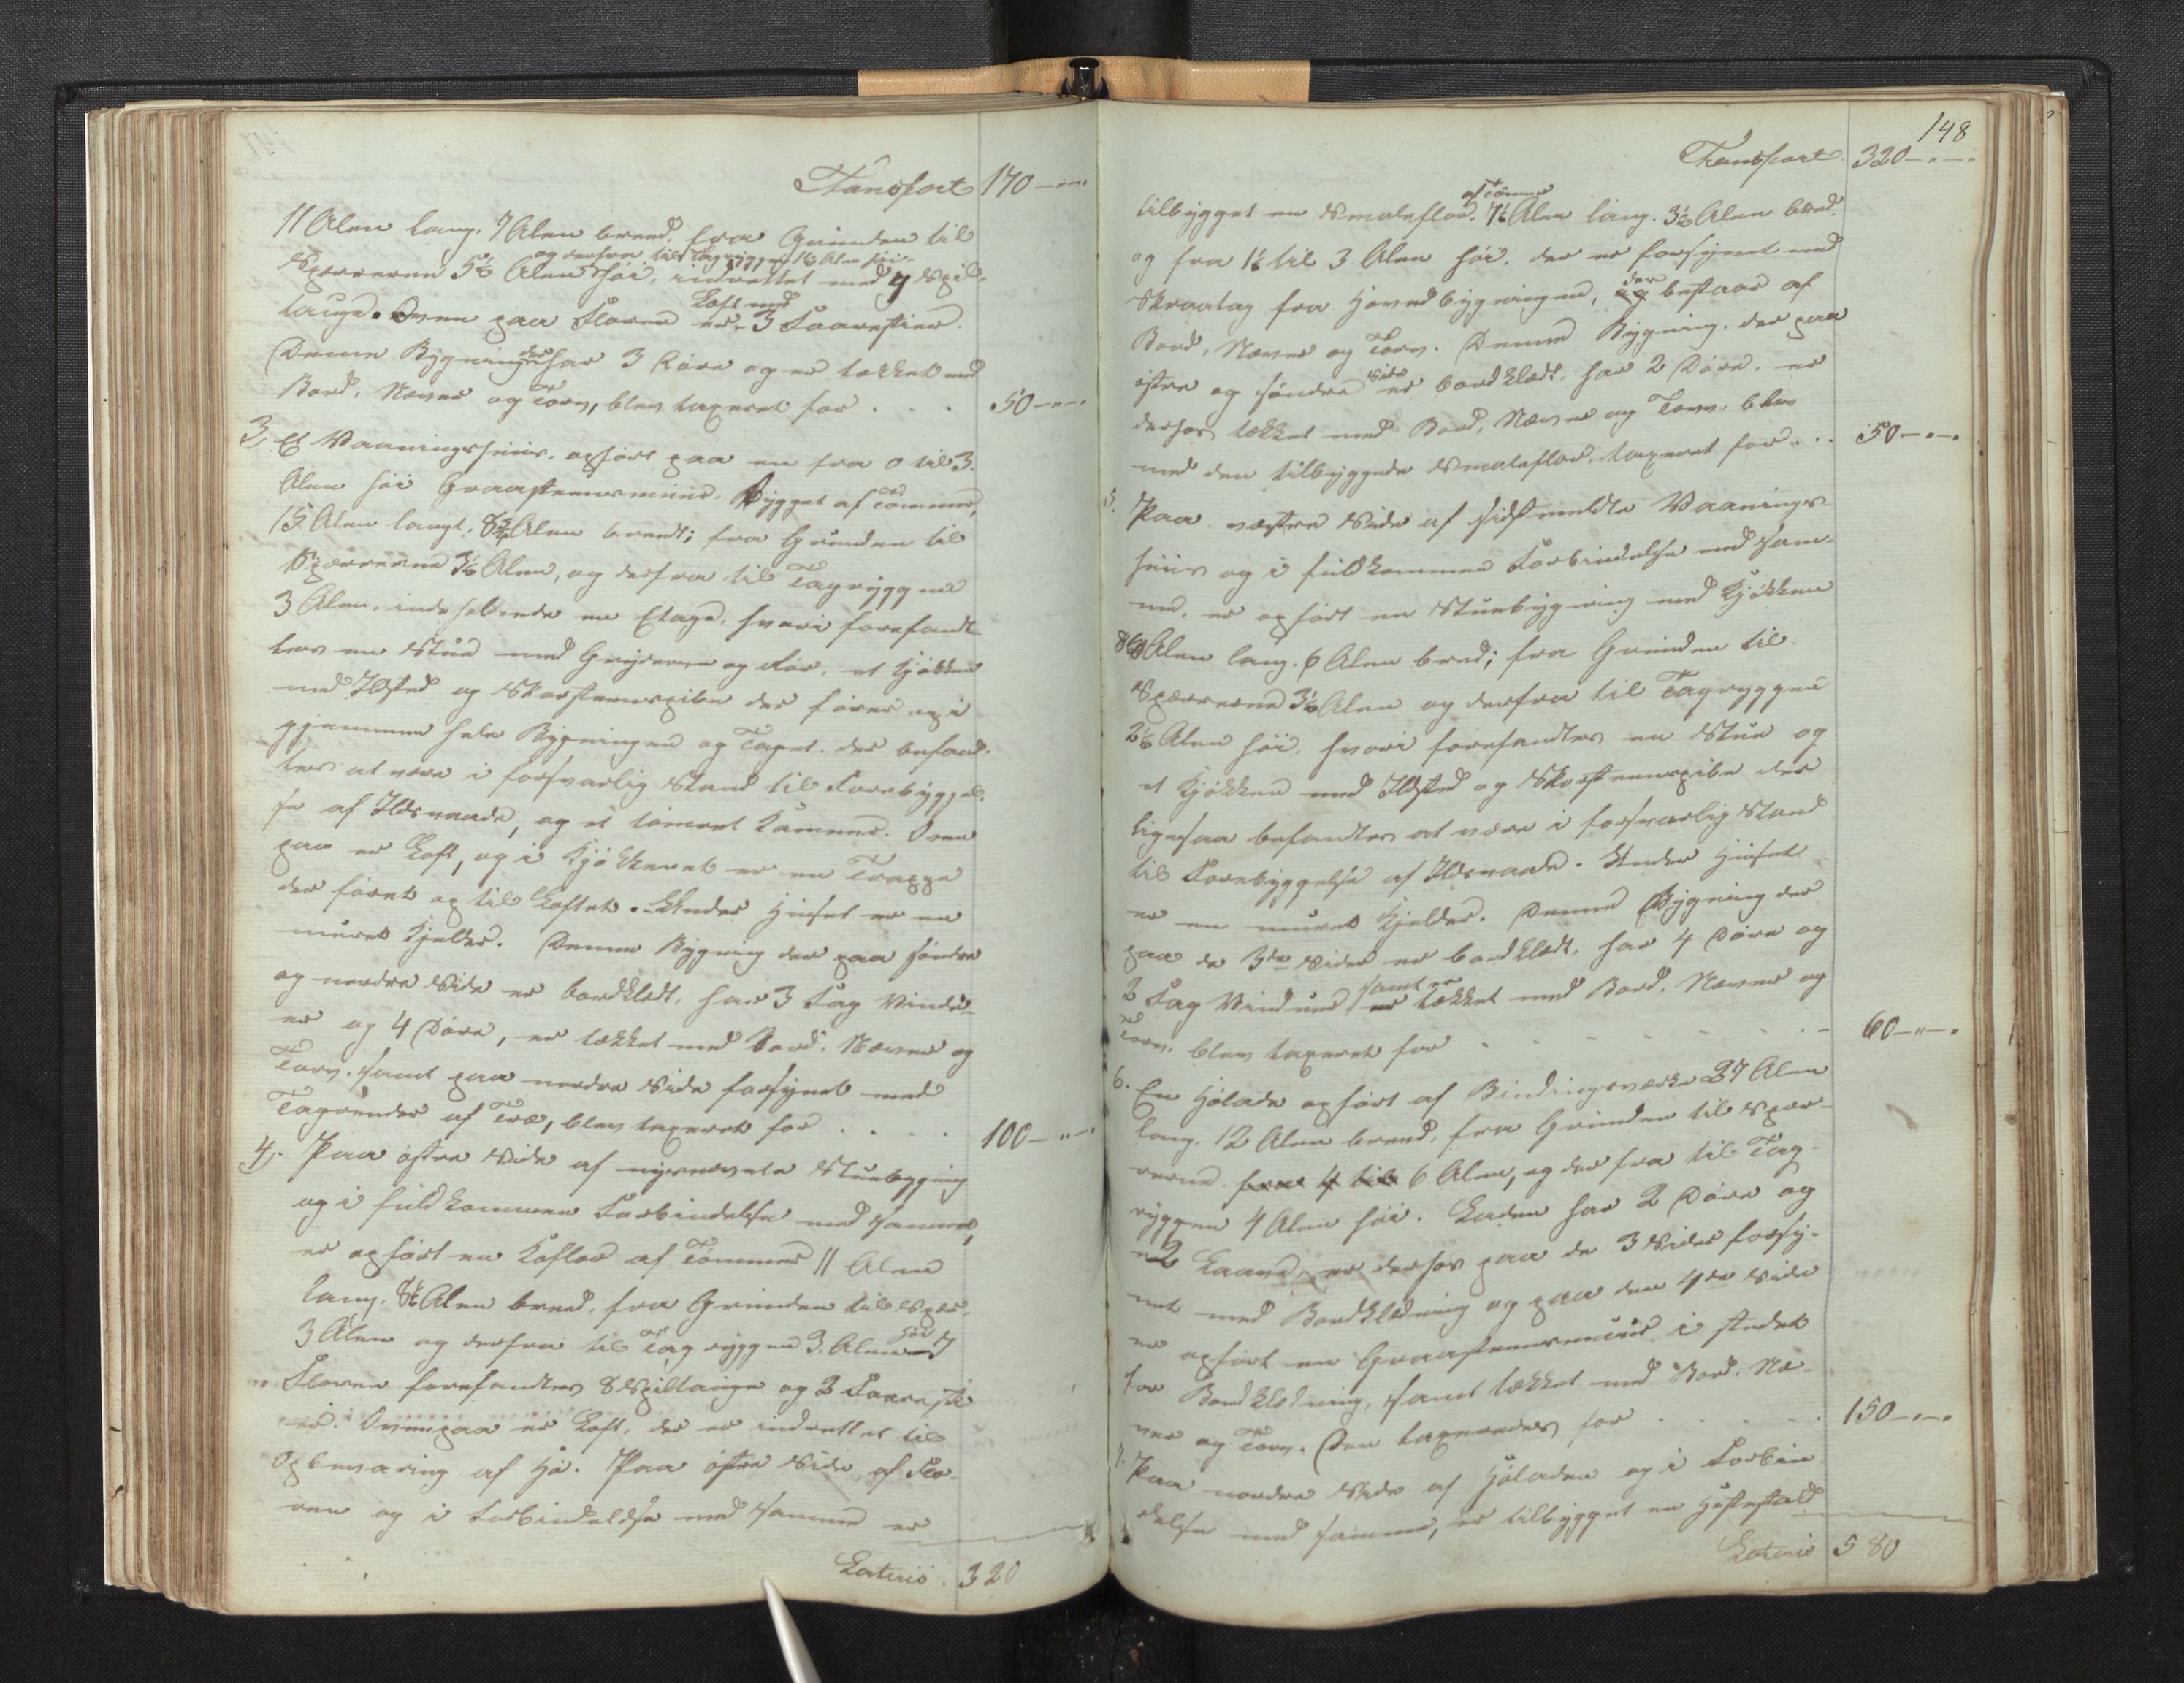 Transport 170
11 Alen lang, 7 Alen breed, fra Grunden til
og derfra til Tagryggen 1½ Alen høi
Sperrerne 5½ Alen høi, indrettet med 4 Spil-
Loft med
touge. Oven paa Floren er 3 Faarestier.
der
Denne Bygning har 3 Døre og er tækket med
Bord, Næver og Torv, blev taxeret for . . . 50
3, Et Vaaningshuus, opført paa en fra 0 til 3
Alen høi Graasteensmuur, Bygget af Tømmer,
15 Alen langt, 8¾ Alen breedt; fra Grunden til
Sperrerne 3½ Alen, og derfra til Tagryggen
3 Alen, indeholdende en Etage, hvori forefandt-
tes en Stue med Gruesteen og Rør, et Kjøkken
med Ildsted og Skorsteenspibe der fører op i
gjennem hele Bygningen og Taget, der befand-
tes at være i forsvarlig Stand til Forebyggel-
se af Ildsvaade, og et tømret Kammer. Oven
paa er Loft, og i Kjøkkenet er en Trappe
der føret op til Loftet. Under Huset er en
muret Kjelder. Denne Bygning der paa søndre
og nordre Side er bordklædt, har 3 Fag Vindu-
er og 4 Døre, er tækket med Bord, Næver og
Torv, samt paa nordre Side forsynet med
Tagrender af Træ, blev taxeret for . . . . 100
4. Paa østre Side af nysnævnte Stuebygning
og i fuldkommen Forbindelse med samme,
er opført en Koflor af Tømmer 11 Alen
lang, 8½ Alen breed, fra Grunden til Sper.
høi
3 Alen og derfra til Tagryggen 3 Alen. I
Floren forefandtes 8 Spiltouge og 2 Faaresti-
er. Ovenpaa er Loft, der er indrettet til
Opbevaring af Hø. Paa østre Side af Flo-
ren og i Forbindelse med samme er
Lateris . 320
148
Transport 320
af Tømmer
tilbygget en Smaleflor, 7½ Alen lang, 3½ Alen bred,
og fra 1½ til 3 Alen høi, der er forsynet med
der
Skraatag fra Hovedbygningen, og bestaar af
Bord, Næver og Torv. Denne Bygning, der paa
Side
østre og søndre er bordklædt, har 2 Døre, er
derhos tækket med Bord, Næver og Torv, blev
med den tilbyggede Smaleflor, taxeret for . . . 50
5. Paa vestre Side af sidstmeldte Vaanings-
huus og i fuldkommen Forbindelse med sam-
me, er opført en Stuebygning med Kjøkken
8½ Alen lang, 6 Alen bred; fra Grunden til
Sperrerne 3½ Alen og derfra til Tagryggen
2½ Alen høi, hvori forefandtes en Stue og
et Kjøkken med Ildsted og Skorsteenspibe der
ligesaa befandtes at være i forsvarlig Stand
til Forebyggelse af Ildsvaade. Under Huset
er en muret Kjelder. Denne Bygning der
paa de 3de Sider er bordklædt, har 4 Døre og
samt er
2 Fag Vinduer er tækket med Bord, Næver og
Torv, blev taxeret for . . . . . . . 60
6. En Hølade opført af Bindingsværk 27 Alen
lang, 12 Alen breed, fra Grunden til Sper-
rerne fra 4 til 6 Alen, og derfra til Tag-
ryggen 4 Alen høi. Laden har 2 Døre og
2 Laaver, er derhos paa de 3 Sider forsy-
net med Bordklædning og paa den 4de Side
er opført en Graasteensmuur i stedet
for Bordklædning, samt tækket med Bord, Næ-
ver og Torv. Den taxeredes for . . . . . 150
7. Paa nordre Side af Høladen og i Forbin-
delse med samme, er tilbygget en Hestestald
Lateris 580